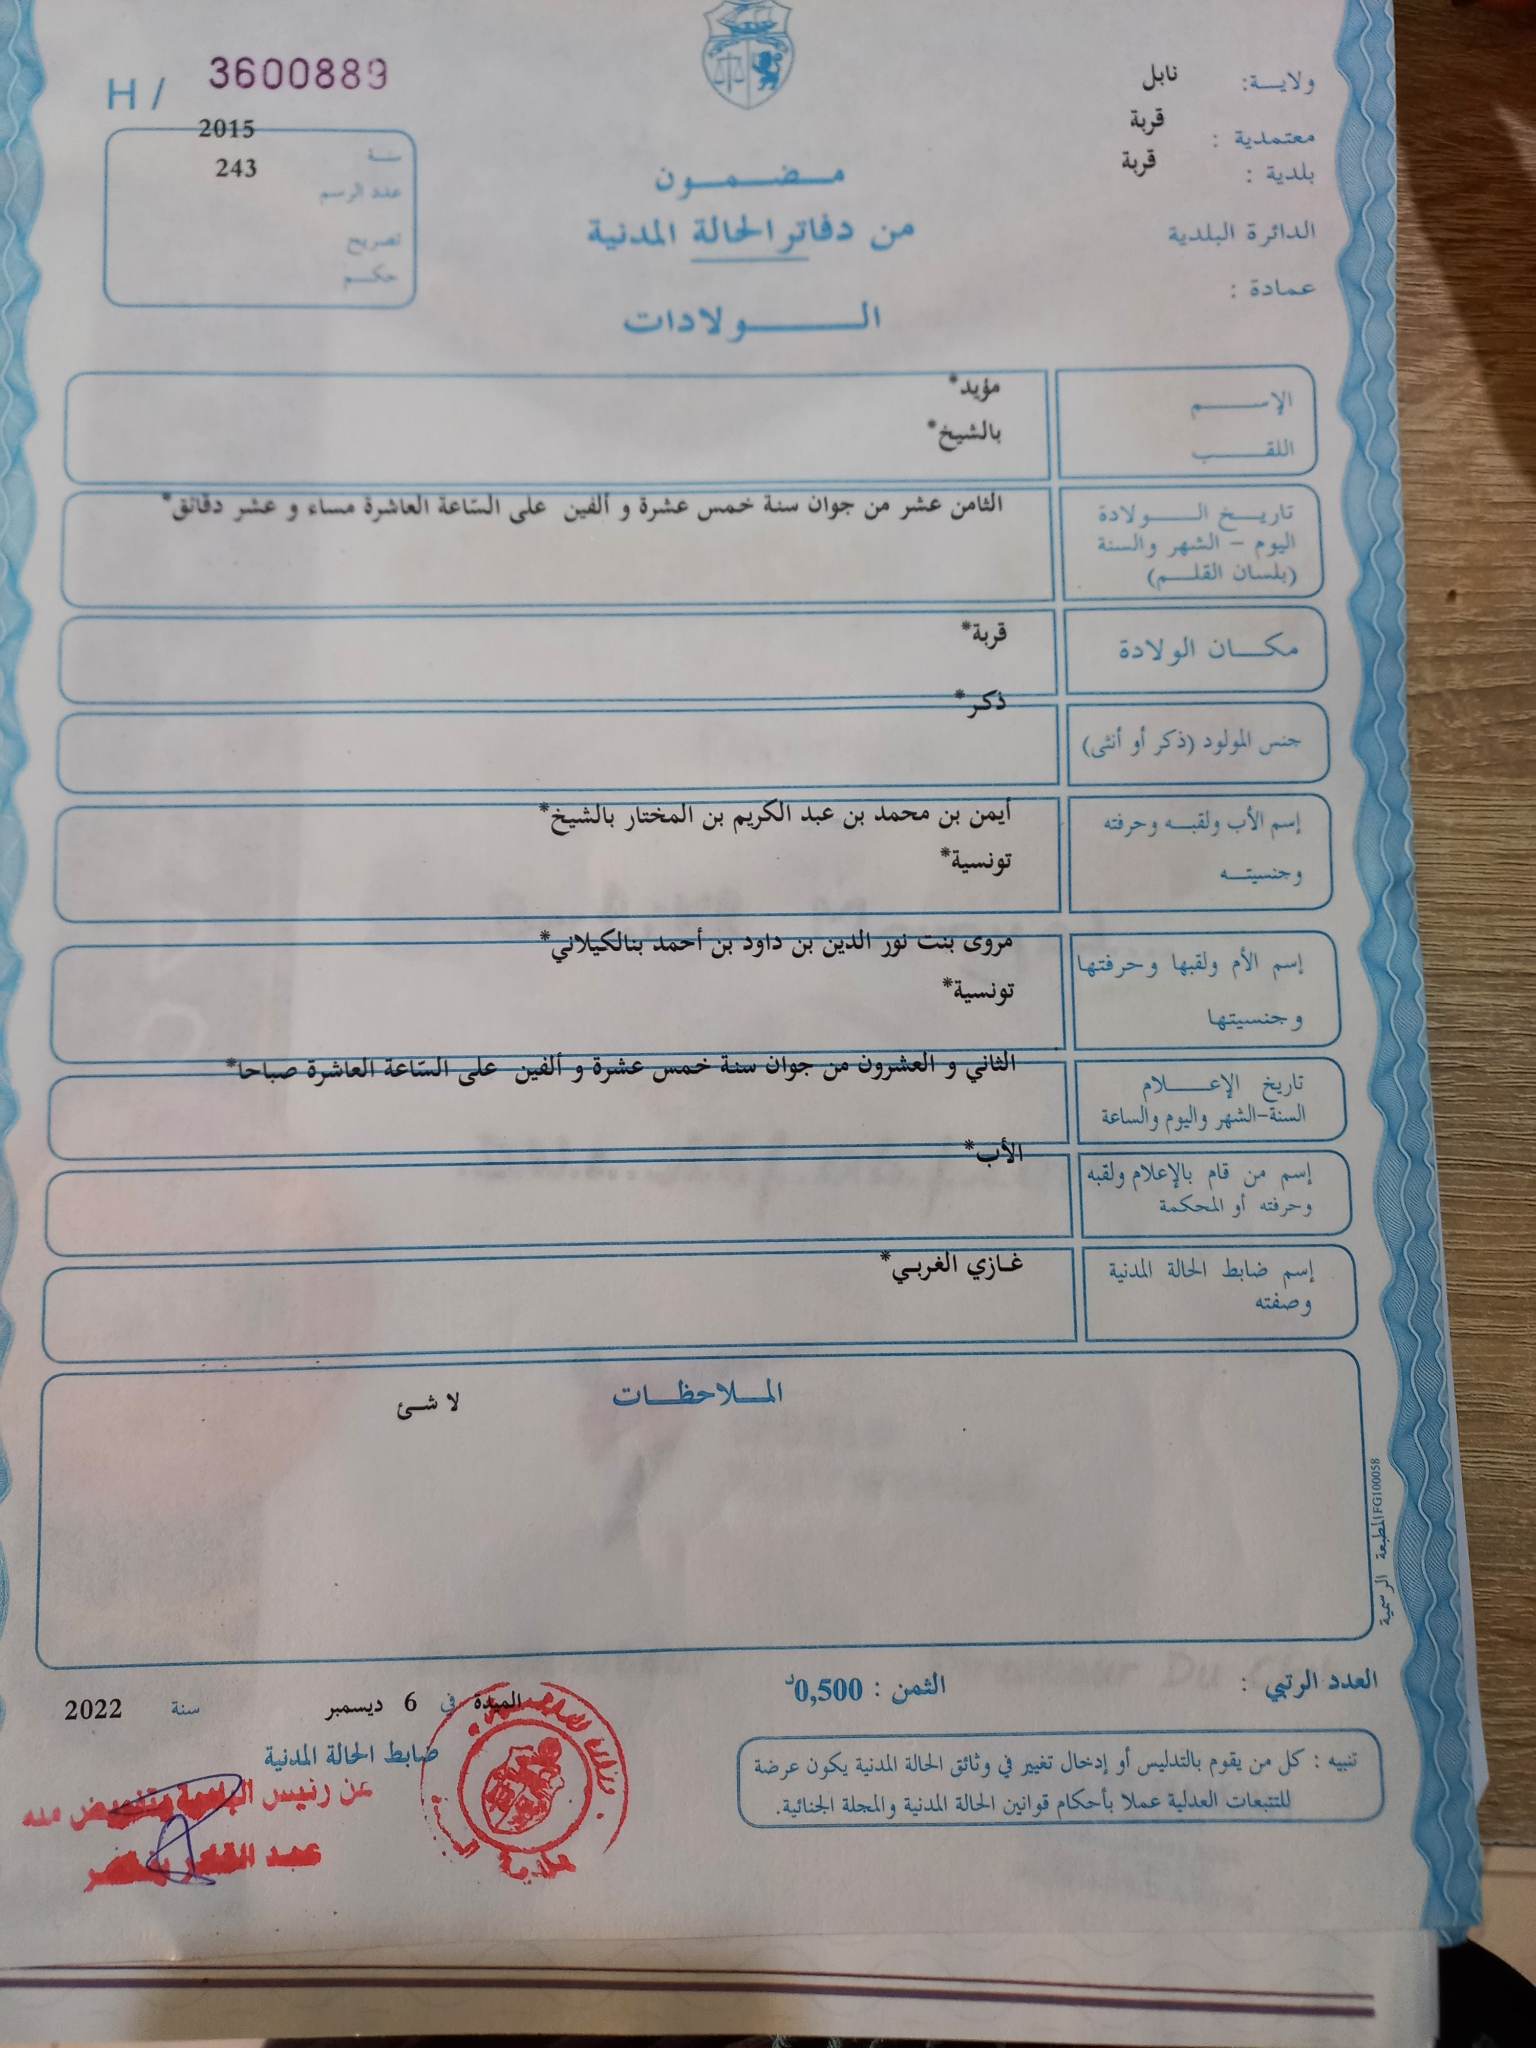 H / 3600889
ولايـة: نابل
معتمدية : قربة
بلدية : قربة
الدائرة البلدية
عمادة :
سنة 2015
عدد الرسم 243
تصريح
حكم
مضمون
من دفاتر الحالة المدنية
الولادات
الإسم مؤيد*
اللقب بالشيخ*
تاريخ الولادة الثامن عشر من جوان سنة خمس عشرة و ألفين على السّاعة العاشرة مساء و عشر دقائق*
اليوم - الشهر والسنة
(بلسان القلم)
مكان الولادة قربة*
جنس المولود (ذكر أو أنثى) ذكر*
إسم الأب ولقبه وحرفته أيمن بن محمد بن عبد الكريم بن المختار بالشيخ*
وجنسيته تونسية*
إسم الأم ولقبها وحرفتها مروى بنت نور الدين بن داود بن أحمد بنالكيلاني*
وجنسيتها تونسية*
تاريخ الإعلام الثاني و العشرون من جوان سنة خمس عشرة و ألفين على السّاعة العاشرة صباحا*
السنة-الشهر واليوم والساعة
إسم من قام بالإعلام ولقبه الأب*
وحرفته أو المحكمة
إسم ضابط الحالة المدنية غازي الغربي*
وصفته
الملاحظات
لا شئ
المطبعة الرسمية FG100058
العدد الرتبي :
الثمن : 0,500د
الميدة في 6 ديسمبر سنة 2022
ضابط الحالة المدنية
عن رئيس البلدية وبتفويض منه
تنبيه : كل من يقوم بالتدليس أو إدخال تغيير في وثائق الحالة المدنية يكون عرضة
للتتبعات العدلية عملا بأحكام قوانين الحالة المدنية والمجلة الجنائية.